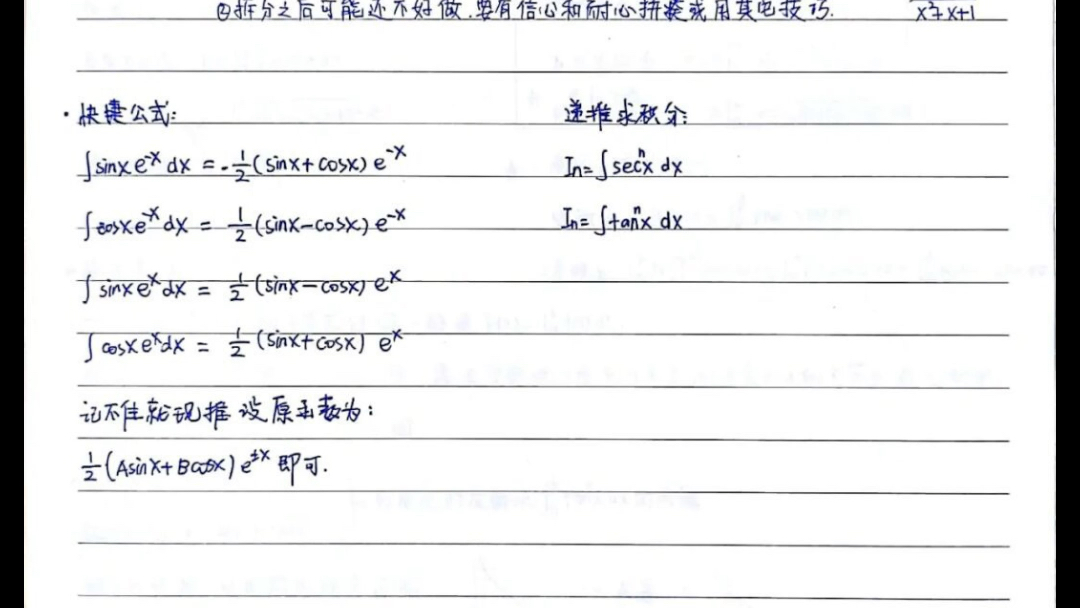 ②拆分之后可能还不好做.要有信心和耐心拼凑或用其它技巧.
x²+x+1
·快捷公式:
∫sinx e⁻ˣ dx = -½(sinx+cosx) e⁻ˣ
∫cosx e⁻ˣ dx = ½(sinx-cosx) e⁻ˣ
∫sinx eˣ dx = ½(sinx-cosx) eˣ
∫cosx eˣ dx = ½(sinx+cosx) eˣ
记不住就现推 设原函数为:
½(Asinx+Bcosx) e^±x 即可.
递推求积分:
In=∫secⁿx dx
In=∫tanⁿx dx